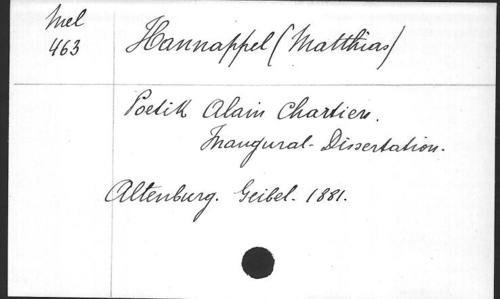 Mel
463
Hannappel (Matthias)
Poetik Alain Chartiers.
Inaugural-Dissertation.
Altenburg. Geibel. 1881.